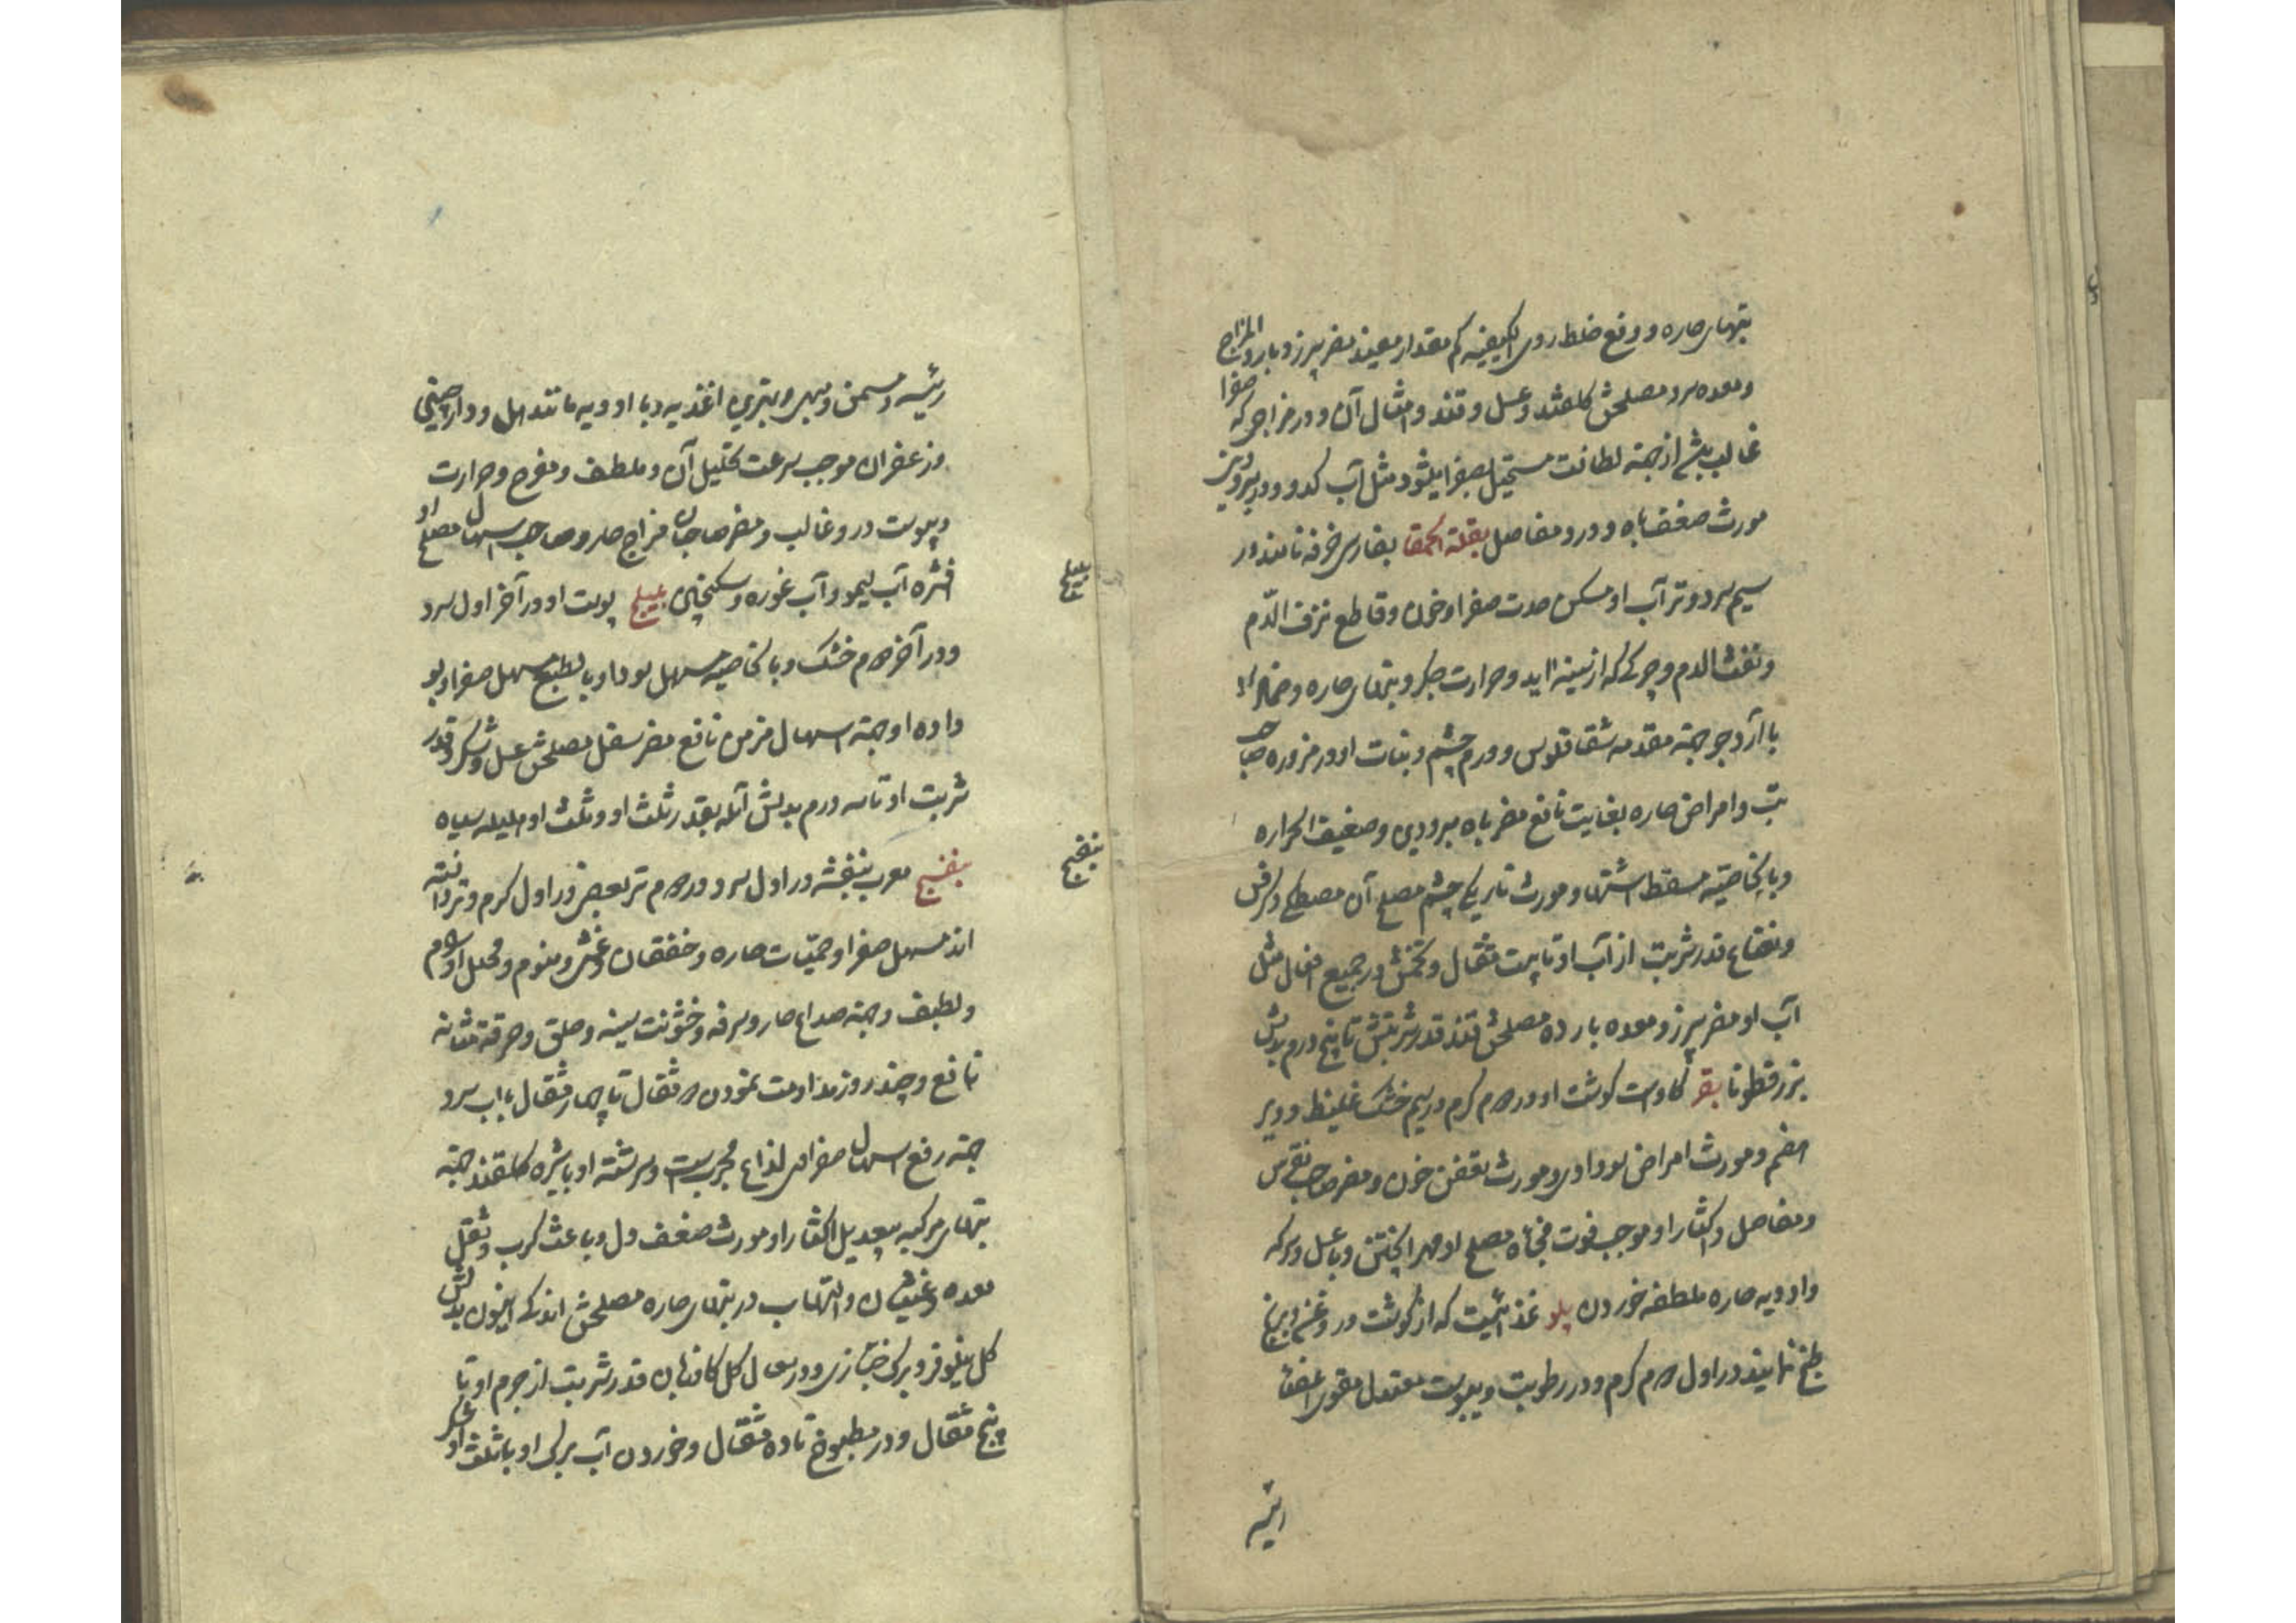 تبهای حاره و دفع خلط ردی الکیفیه کم مقدار مفید مضر سپرز و بارد المزاج
و معده سرد مصلحش گلقند و عسل و قند و امثال آن و در مزاجی که صفرا
غالب باشد از جهة لطافت مستحیل بصفرا میشود مثل آب کدو و در مبرودین
مورث ضعف باه و درد مفاصل بقلة الحمقا بفارسی خرفه نامند در
سیم سرد و تر آب او مسکن حدت صفرا و خون و قاطع نزف الدّم
و نفث الدم و چرکی که از سینه آید و حرارت جکر و تبهای حاره و ضماد او
با آرد جو جهة مقدمه شقاقلوس و ورم چشم و نبات او در مزوره صاحب
تب و امراض حاره بغایت نافع مضر باه مبرودین و ضعیف الحراره
و بالخاصیّه مسقط اشتها و مورث تاریکی چشم مصلح آن مصطکی و کرفس
و نعناع قدر شربت از آب او تا بیست مثقال و تخمش در جمیع افعال مثل
آب او مضر سپرز و معده بارده مصلحش قند قدر شربتش تا پنج درم بدلش
بزرقطونا بقر کاوست کوشت او در دوم کرم در سیم خشک غلیظ و دیر
هضم و مورث امراض سوداوی و مورث تعفن خون و مضر صاحب نقرس
و مفاصل و اکثار او موجب فوت فجأه مصلح او مهرا پختن و با عسل و سرکه
و ادویه حاره ملطفه خوردن پلو غذائیست که از کوشت و روغن و برنج
طبخ نمایند در اول دوم کرم و در رطوبت و یبوست معتدل مقوی اعضا
رئیسه
رئیسه و مسمن و مبهی و بهترین اغذیه و با ادویه مانند هل و دارچینی
و زعفران موجب سرعت تحلیل آن و ملطف و مفرح و حرارت
و یبوست در و غالب و مضر صاحبان مزاج حار و صاحب اسهال مصلح او
افشره آب لیمو و آب غوره و سکنجبین بلیلج پوست او در آخر اول سرد
بلیلج
و در آخر دوم خشک و بالخاصیه مسهل سودا و بالطبع مسهل صفرا و بو
داده او جهة اسهال مزمن نافع مضر سفل مصلحش عسل و شکر و قدر
شربت او تا سه درم بدلش آمله بقدر ثلث او و ثلث او هلیله سیاه
بنفسج معرب بنفشه در اول سرد و در دوم تر بعضی در اول کرم و تر دانسته
بنفسج
اند مسهل صفرا و حمّیات حاره و خفقان و غشی و منوم و محلل اورام
و لطیف و جهة صداع حار و سرفه و خشونت سینه و حلق و حرقة مثانه
نافع و چند روز مداومت نمودن دو مثقال تا چهار مثقال با آب سرد
جهة رفع اسهال صفراوی لذاع مجربست و سرشته او با شیره گلقند جهة
تبهای مرکبه بیعدیل اکثار او مورث ضعف دل و باعث کرب و ثقل
معده و غثیان و التهاب در تبهای حاره مصلحش اندکی انیسون بدلش
کل نیلوفر و برک خبازی و در سعال کل کاوزبان قدر شربت از جرم او تا
پنج مثقال و در مطبوخ تا ده مثقال و خوردن آب برک او با ثلث او شکر